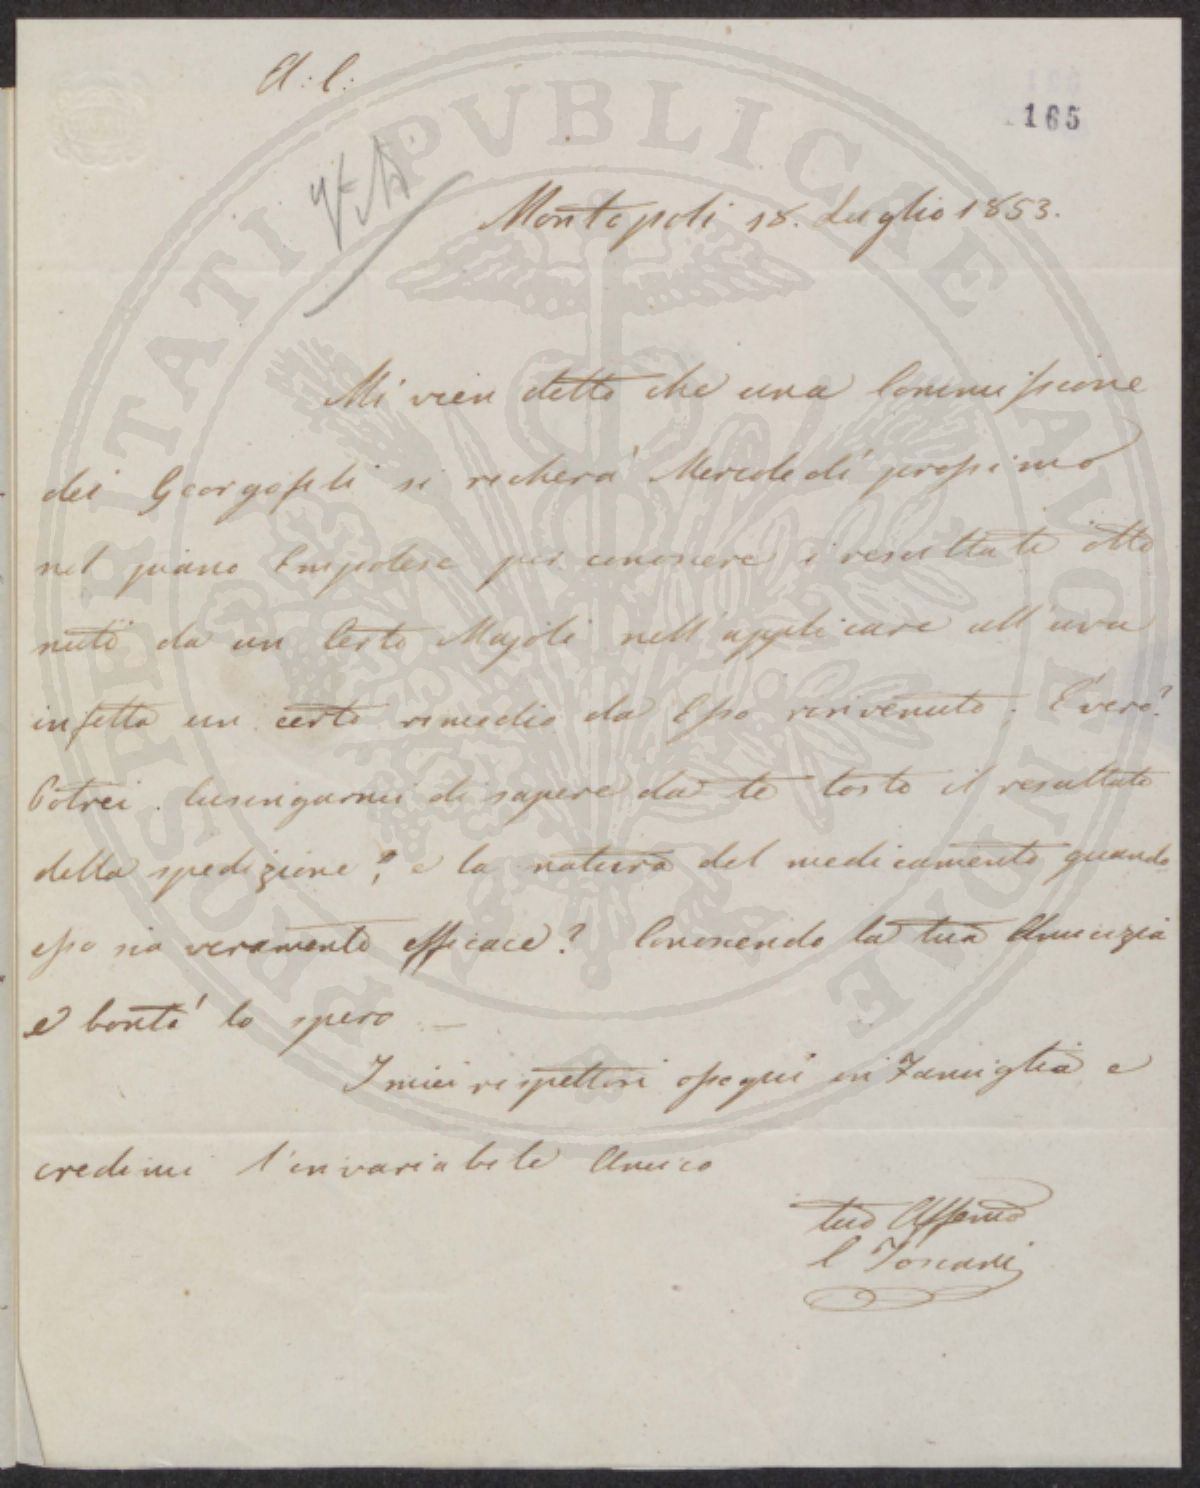 A: C:
165
Montopoli 18. Luglio 1853.
Mi vien detto che una Commissione
dei Georgofili si recherà Mercoledì prossimo
nel piano Empolese per conoscere i resultati otte
nuti da un Certo Majoli nell'applicare all'uva
infetta un certo rimedio da Esso rinvenuto. È vero?
Potrei lusingarmi di sapere da te tosto il resultato
della spedizione? e la natura del medicamento quando
esso sia veramente efficace? Conoscendo la tua Amicizia
e bontà lo spero
I miei rispettosi ossequi in Famiglia e
credimi l'invariabile Amico
tuo Affemo
C Toscani
PROSPERITATI PVBLICAE AVGENDAE